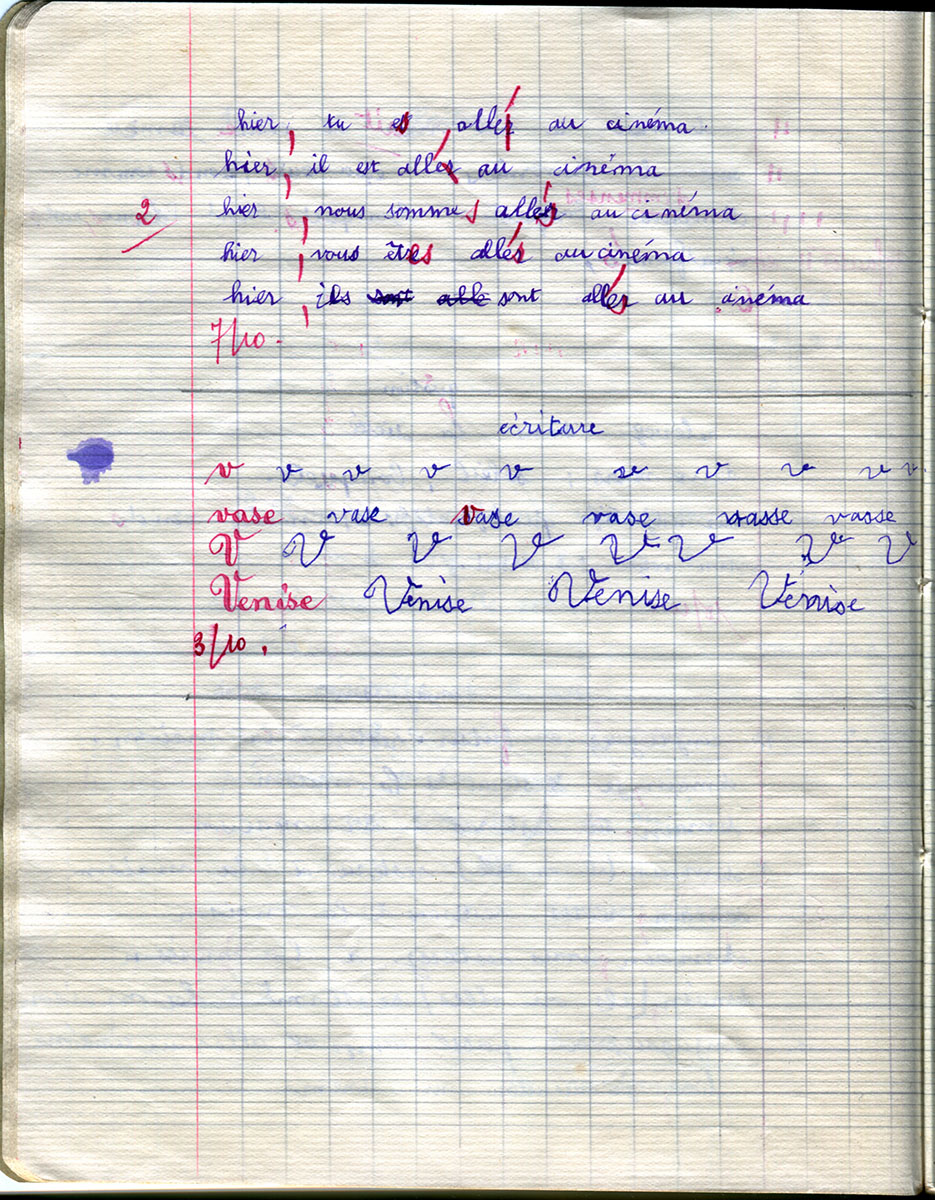 hier, tu es allé au cinéma.
hier, il est allé au cinéma
2 hier, nous sommes allés au cinéma
hier, vous êtes allés au cinéma
hier, ils sont allés au cinéma
7/10.
écriture
v v v v v v v v v v
vase vase vase vase vasse vasse
V V V V V V V V
Venise Vènise Venise Vénise
3/10.